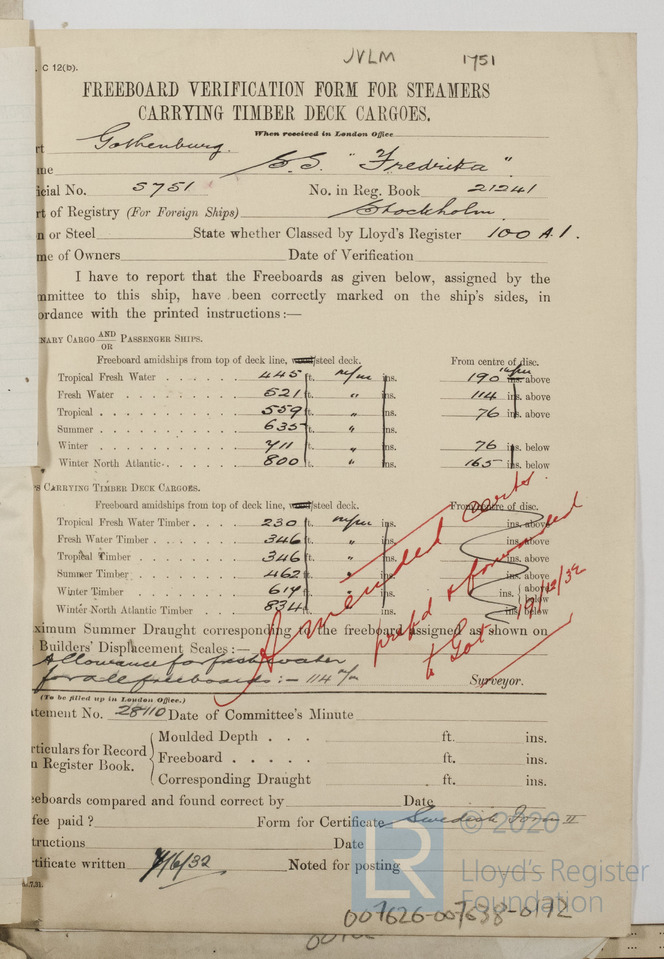 JVLM 1751
. C 12(b).
FREEBOARD VERIFICATION FORM FOR STEAMERS
CARRYING TIMBER DECK CARGOES.
When received in London Office
rt Gothenburg.
me S.S. "Fredrika".
icial No. 5751 No. in Reg. Book 21241
rt of Registry (For Foreign Ships) Stockholm.
n or Steel State whether Classed by Lloyd's Register 100 A.1.
me of Owners Date of Verification
I have to report that the Freeboards as given below, assigned by the
mmittee to this ship, have been correctly marked on the ship's sides, in
ordance with the printed instructions:—
NARY CARGO AND OR PASSENGER SHIPS.
Freeboard amidships from top of deck line, wood/steel deck. From centre of disc.
Tropical Fresh Water 445 ft. m/m ins. 190 m/m ins. above
Fresh Water 521 ft. " ins. 114 ins. above
Tropical 559 ft. " ins. 76 ins. above
Summer 635 ft. " ins.
Winter 711 ft. " ins. 76 ins. below
Winter North Atlantic 800 ft. " ins. 165 ins. below
S CARRYING TIMBER DECK CARGOES.
Freeboard amidships from top of deck line, wood/steel deck. From centre of disc.
Tropical Fresh Water Timber 230 ft. m/m ins. ins. above
Fresh Water Timber 346 ft. " ins. ins. above
Tropical Timber 346 ft. " ins. ins. above
Summer Timber 462 ft. " ins. ins. above
Winter Timber 617 ft. " ins. ins. above below
Winter North Atlantic Timber 834 ft. ins. ins. below
Amended certs.
prep'd & forwarded
to Got. 19/12/32
ximum Summer Draught corresponding to the freeboard assigned as shown on
Builders' Displacement Scales:—
Allowance for fresh water
for all freeboards:— 114 m/m
Surveyor.
(To be filled up in London Office.)
tement No. 28110 Date of Committee's Minute
rticulars for Record n Register Book.
Moulded Depth . . . ft. ins.
Freeboard . . . . . ft. ins.
Corresponding Draught . ft. ins.
eeboards compared and found correct by Date
fee paid ? Form for Certificate Swedish Form II
tructions Date
rtificate written 7/6/32 Noted for posting
.7.31.
© 2020
LR
Lloyd's Register
Foundation
007626-007638-0172